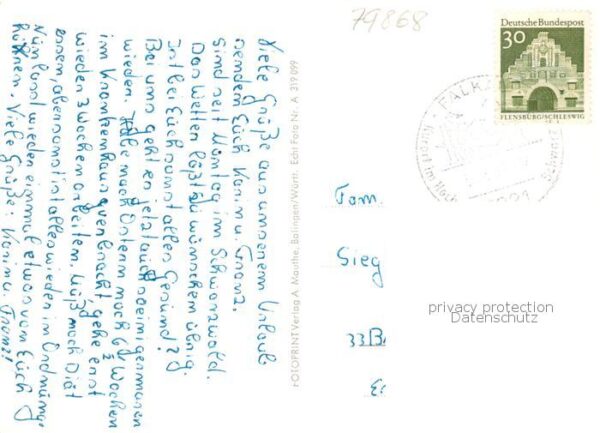 79868
Deutsche Bundespost
30
FLENSBURG/SCHLESWIG
FALKA
Kurort im Hoch
Schwarz
Viele Grüße aus unserem Urlaub
sendem Euch Karin u. Franz.
Sind seit Montag im Schwarzwald.
Das Wetter läßt zu wünschen übrig.
Ist bei Euch sonst alles Gesund?
Bei uns geht es jetzt auch so einigermaßen
wieder. Habe nach Ostern noch 6½ Wochen
im Krankenhaus zugebracht, gehe erst
wieder 3 Wochen arbeiten. Muß noch Diät
essen, aber sonst ist alles wieder in Ordnung.
Nun laßt wieder einmal etwas von Euch
hören. Viele Grüße: Karin u. Franz!
FOTOPRINT Verlag A. Mauthe, Balingen/Württ. Echt Foto Nr. A 319 099
Fam.
Sieg
33 B
privacy protection
Datenschutz